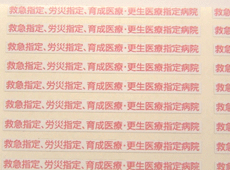 救急指定、労災指定、育成医療・更生医療指定病院
救急指定、労災指定、育成医療・更生医療指定病院
救急指定、労災指定、育成医療・更生医療指定病院
救急指定、労災指定、育成医療・更生医療指定病院
救急指定、労災指定、育成医療・更生医療指定病院
救急指定、労災指定、育成医療・更生医療指定病院
救急指定、労災指定、育成医療・更生医療指定病院
救急指定、労災指定、育成医療・更生医療指定病院
救急指定、労災指定、育成医療・更生医療指定病院